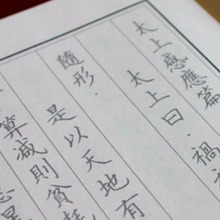 太上感應篇
太上曰　禍
隨形．
是以天地有
算减則貧耗